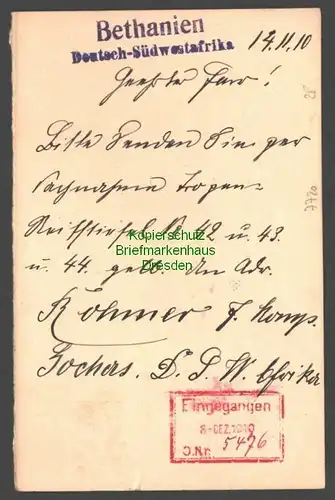 Bethanien
Deutsch-Südwestafrika
14.11.10
Geehrter Herr!
Bitte senden Sie per
Nachnahme Tropen-
Reitstiefel No 42 u. 43.
u. 44. gelb. An Adr.
Kopierschutz
Briefmarkenhaus
Dresden
Röhmer 7. Komp.
D. S. W. Afrika
Eingegangen
8-DEZ.1910
J.Nr. 5476
7720